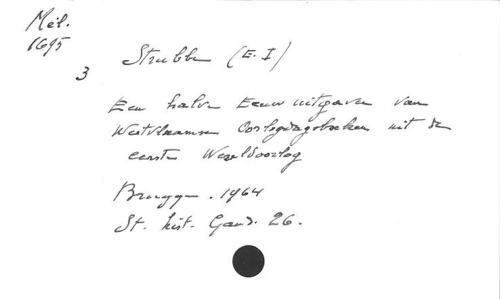 Mél.
1695
3 Strubbe (E. I)
Een halve Eeuw uitgaven van
Westvlaamse Oorlogdagboeken uit de
eerste Wereldoorlog
Brugge. 1964
St. hist. Gand. 26.